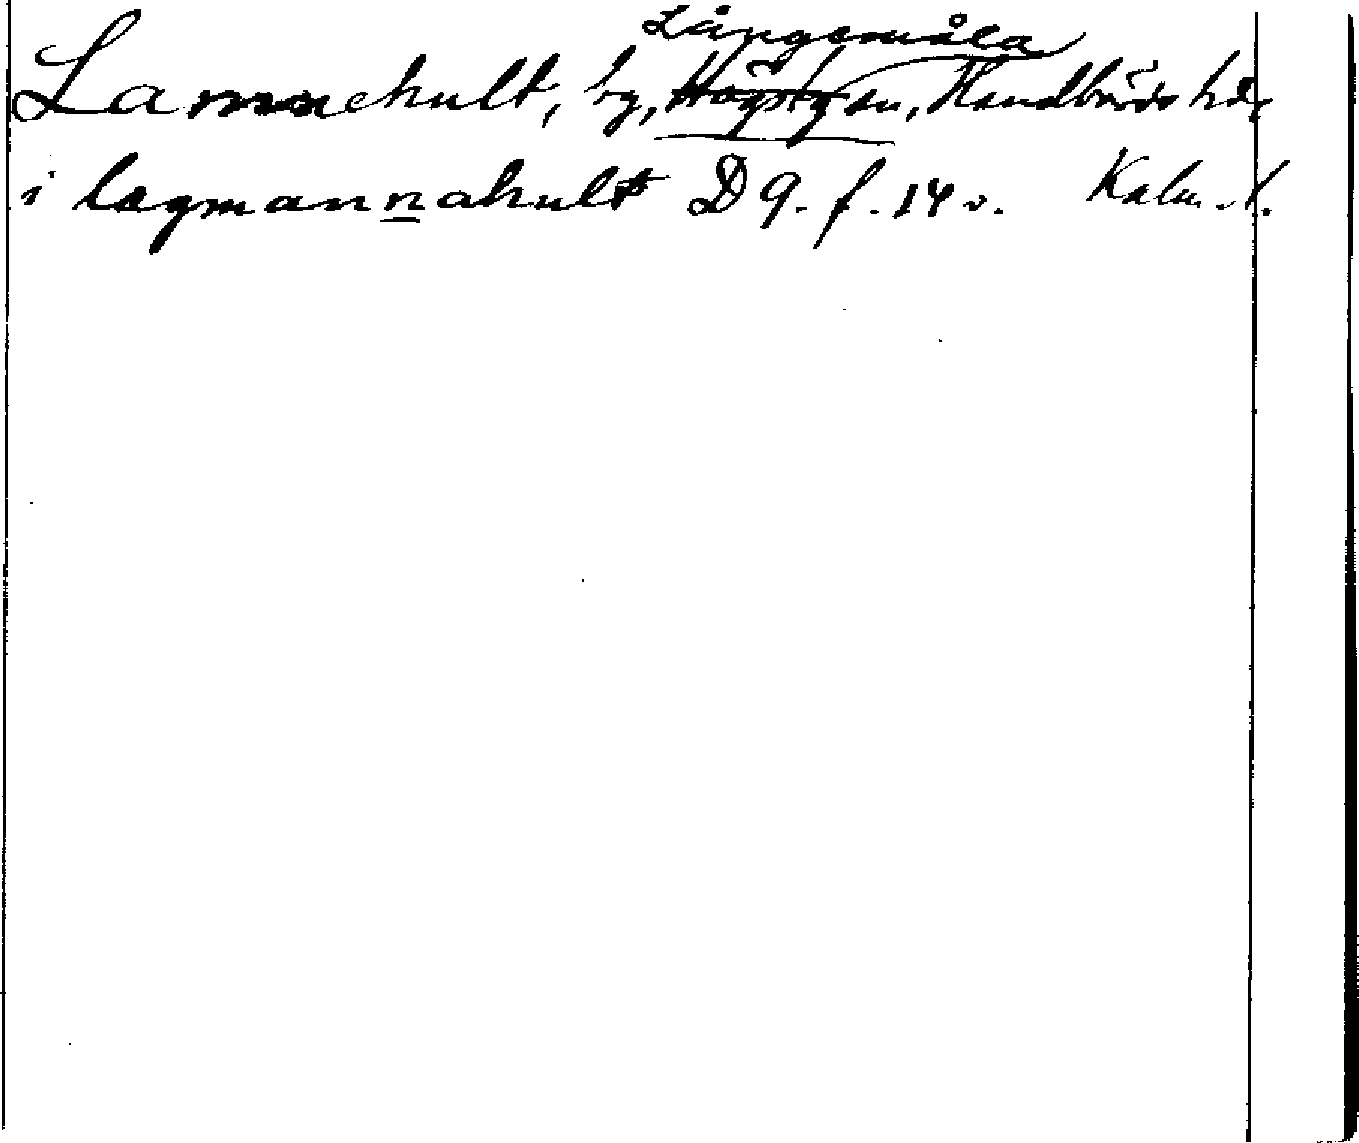 Långemåla
Lamnehult, by, Högsby sn, Handbörds hd,
i lagmannahult D 9. f. 14 v. Kalm. l.